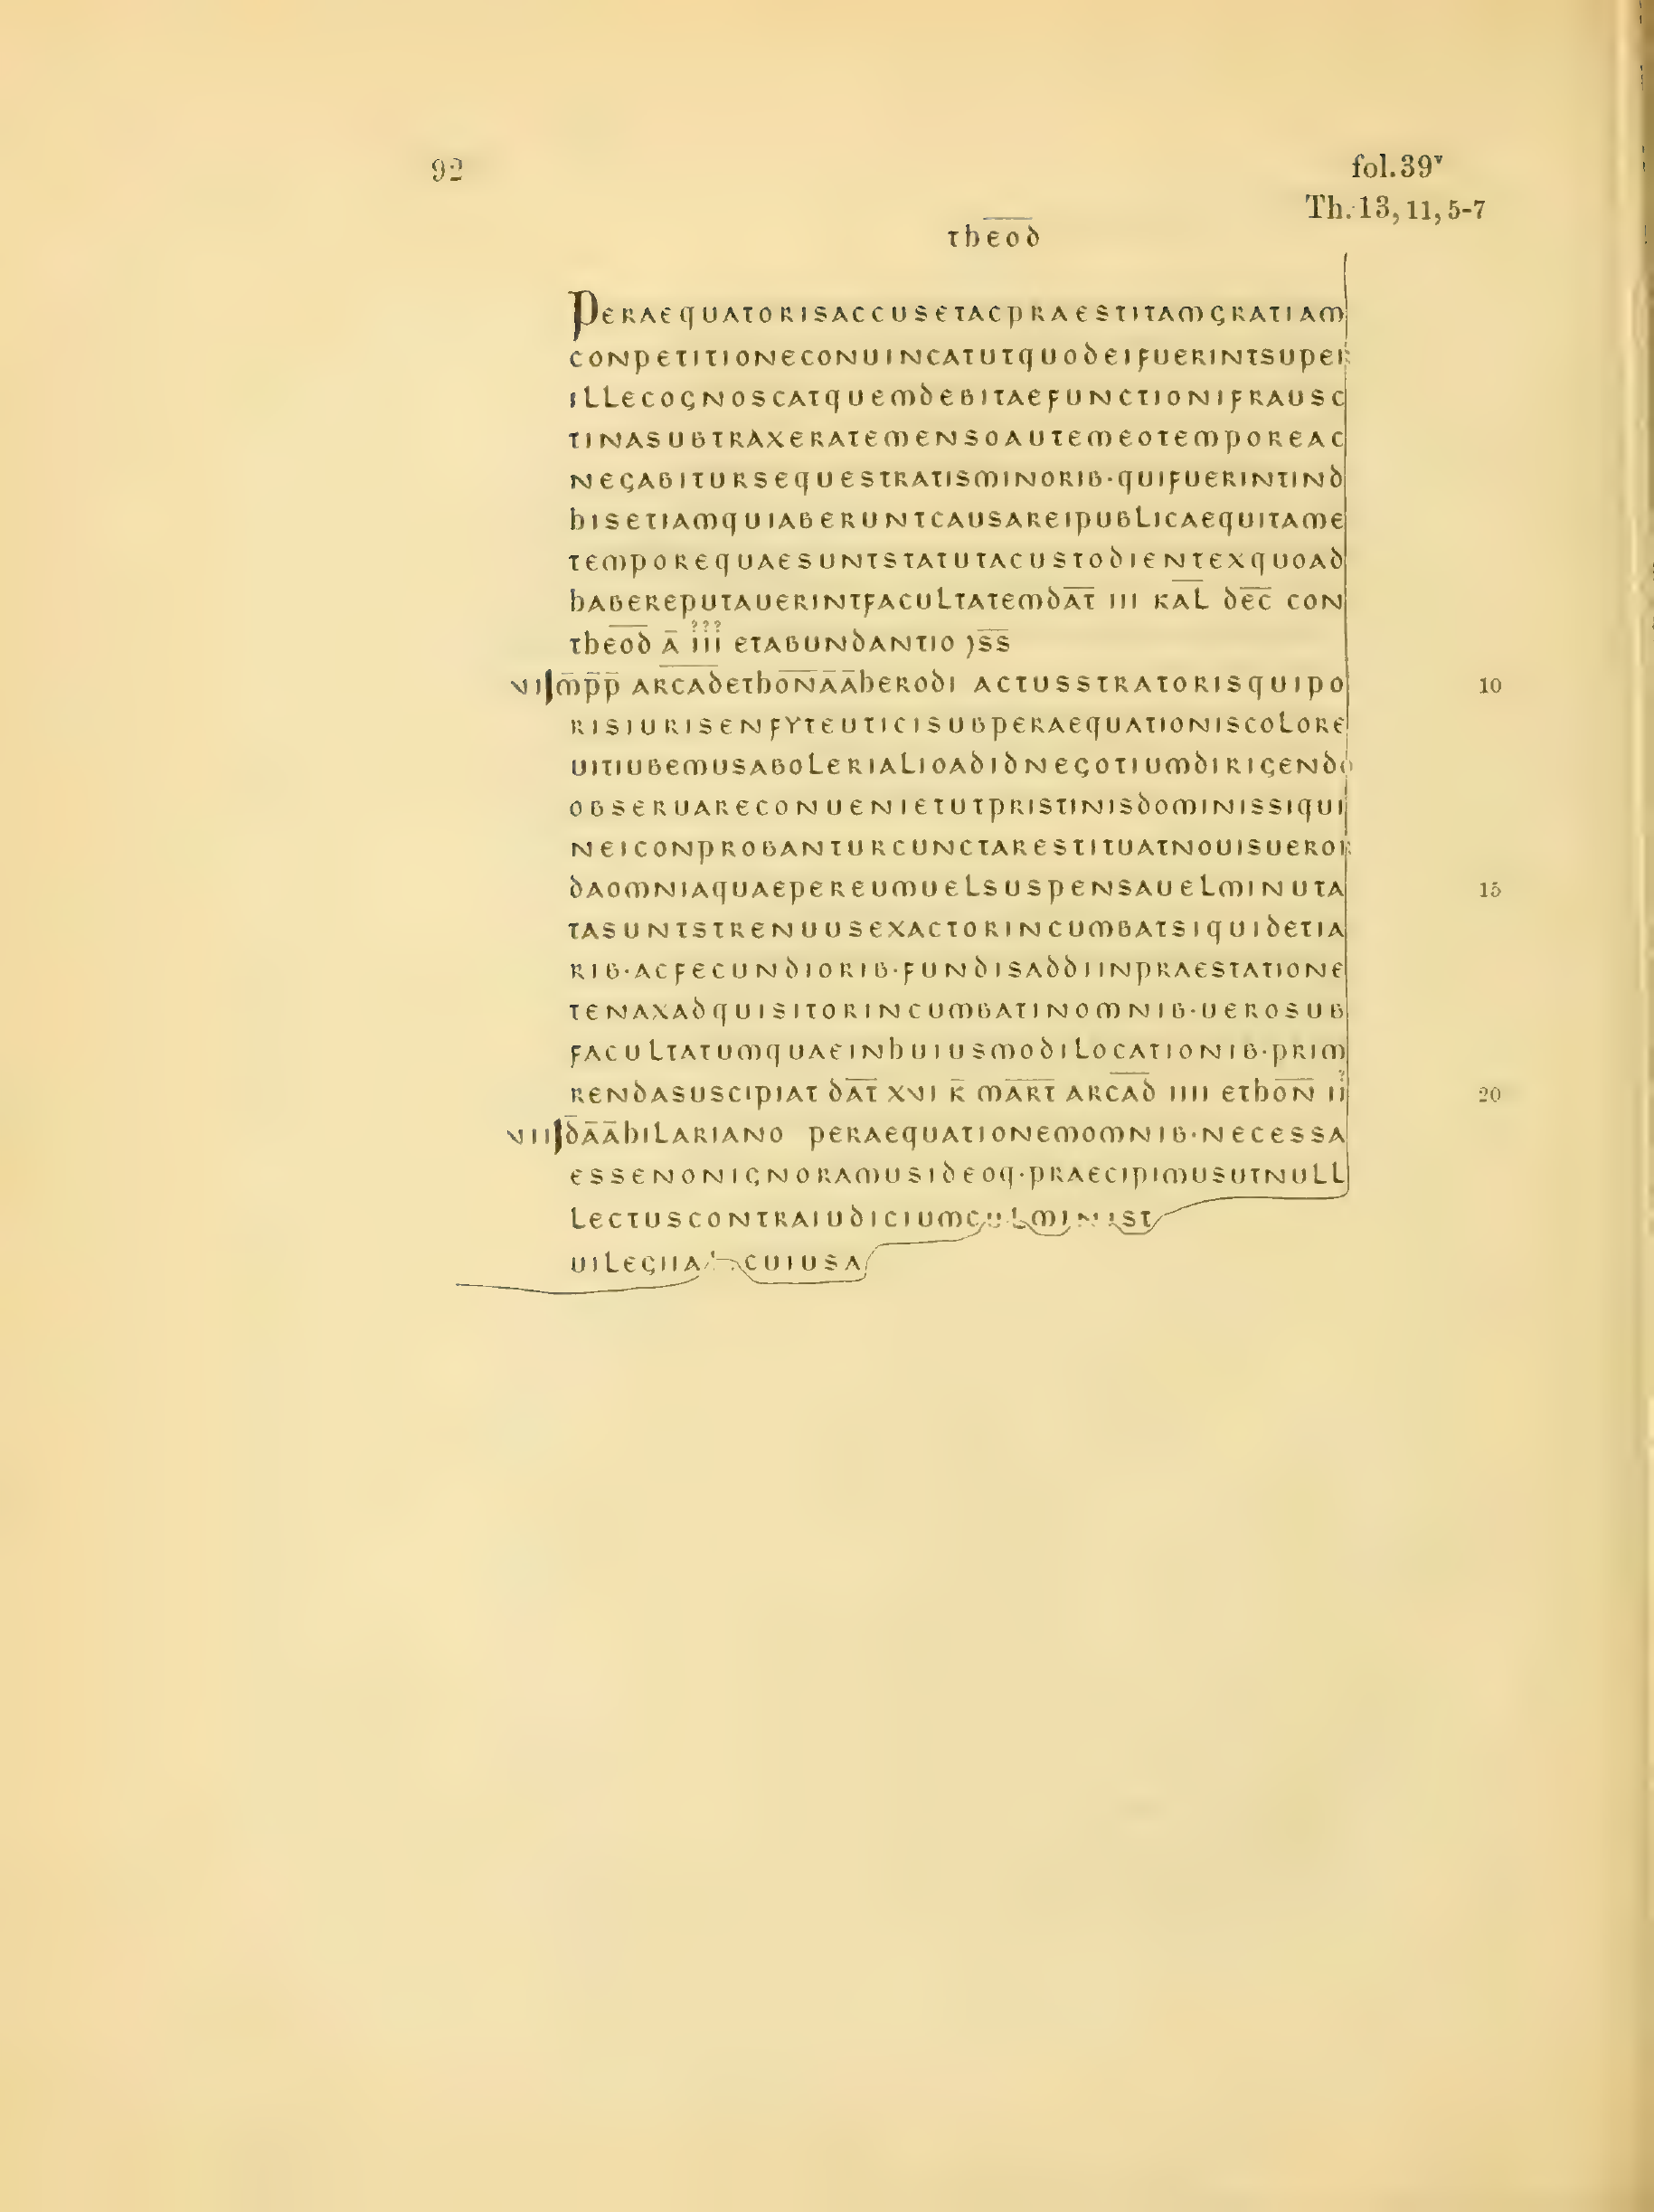 92
fol.39ᵛ
Th. 13, 11, 5-7
theod̅
PERAEQUATORISACCUSETACPRAESTITAMGRATIAM
CONPETITIONECONUINCATUTQUODEIFUERINTSUPER
ILLECOGNOSCATQUEMDEBITAEFUNCTIONIFRAUSC
TINASUBTRAXERATEMENSOAUTEMEOTEMPOREAC
NEGABITURSEQUESTRATISMINORIB·QUIFUERINTIND
hISETIAMQUIABERUNTCAUSAREIPUBLICAEQUITAME
TEMPOREQUAESUNTSTATUTACUSTODIENTEXQUOAD
hABEREPUTAUERINTFACULTATEMDA̅T̅ III KA̅L̅ DE̅C̅ CON
ThE̅O̅D̅ A̅ III ETABUNDANTIO )S̅S̅
VI M̅P̅P̅ ARCA̅D̅EThO̅N̅A̅A̅hERODI ACTUSSTRATORISQUIPO
10
RISIURISENFYTEUTICISUBPERAEQUATIONISCOLORE
UITIUBEMUSABOLERIALIOADIDNEGOTIUMDIRIGENDO
OBSERUARECONUENIETUTPRISTINISDOMINISSIQUI
NEICONPROBANTURCUNCTARESTITUATNOUISUEROR
DAOMNIAQUAEPEREUMUELSUSPENSAUELMINUTA
15
TASUNTSTRENUUSEXACTORINCUMBATSIQUIDETIA
RIB·ACFECUNDIORIB·FUNDISADDIINPRAESTATIONE
TENAXADQUISITORINCUMBATINOMNIB·UEROSUB
FACULTATUMQUAEINhUIUSMODILOCATIONIB·PRIM
RENDASUSCIPIAT DA̅T̅ XVI K̅ MA̅R̅T̅ ARCA̅D̅ IIII EThO̅N̅ II
20
VII D̅A̅A̅hILARIANO PERAEQUATIONEMOMNIB·NECESSA
ESSENONIGNORAMUSIDEOQ·PRAECIPIMUSUTNULL
LECTUSCONTRAIUDICIUMCULMINIST
UILEGIIA CUIUSA